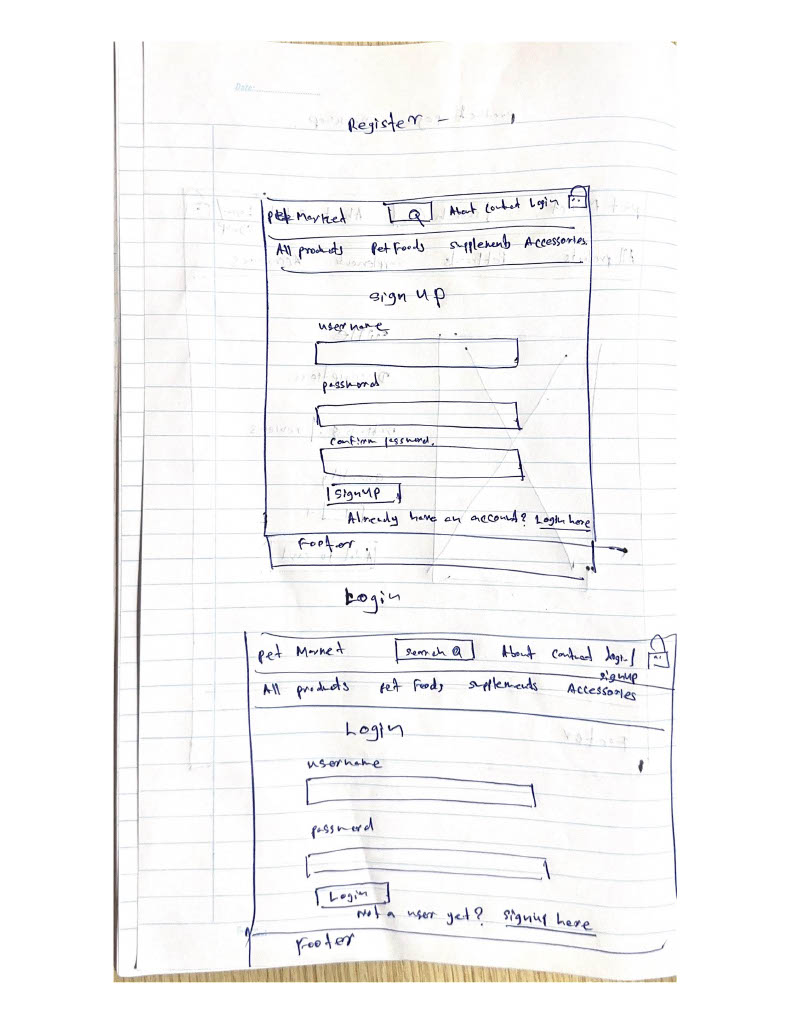 Date:
Register -
Pet Market Q About Contact Login
All products Pet Foods supplements Accessories
sign up
username
password
Confirm password.
Signup
Already have an account? Login here
Footer.
Login
Pet Market search Q About contact login/
signup
All products pet Foods supplements Accessories
Login
username
password
Login
Not a user yet? Signup here
Footer